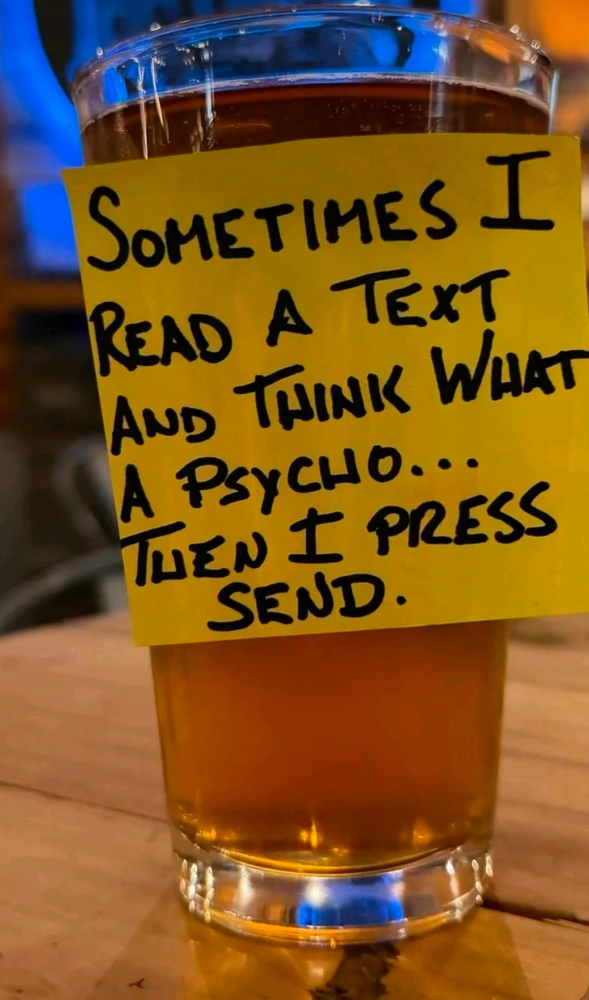 SOMETIMES I
READ A TEXT
AND THINK WHAT
A PSYCHO...
THEN I PRESS
SEND.